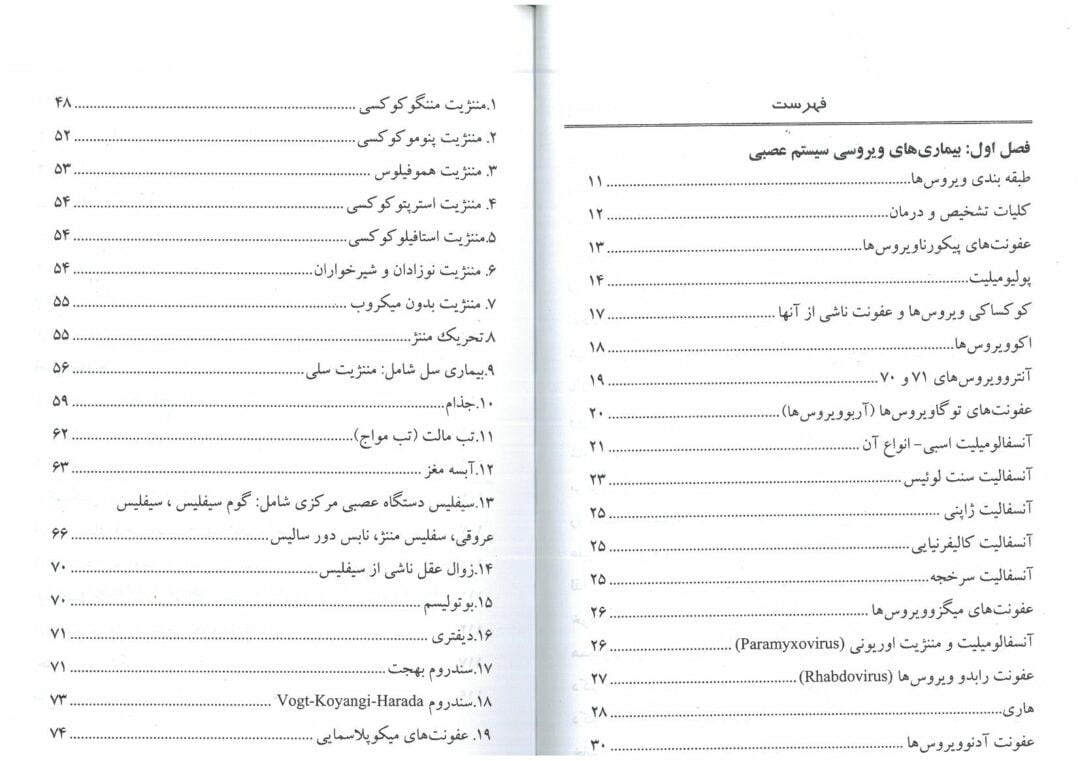 فهرست
فصل اول: بیماری‌های ویروسی سیستم عصبی
طبقه بندی ویروس‌ها................................................................ ۱۱
کلیات تشخیص و درمان................................................................ ۱۲
عفونت‌های پیکورناویروس‌ها................................................................ ۱۳
پولیومیلیت................................................................ ۱۴
کوکساکی ویروس‌ها و عفونت ناشی از آنها ................................ ۱۷
اکوویروس‌ها................................................................ ۱۸
آنتروویروس‌های ۷۱ و ۷۰................................................................ ۱۹
عفونت‌های توگاویروس‌ها (آربوویروس‌ها)................................ ۲۰
آنسفالومیلیت اسبی- انواع آن ................................................ ۲۱
آنسفالیت سنت لوئیس................................................................ ۲۳
آنسفالیت ژاپنی ................................................................ ۲۵
آنسفالیت کالیفرنیایی................................................................ ۲۵
آنسفالیت سرخجه................................................................ ۲۵
عفونت‌های میگزوویروس‌ها ................................................ ۲۶
آنسفالومیلیت و مننژیت اوریونی (Paramyxovirus) ........................ ۲۶
عفونت رابدو ویروس‌ها (Rhabdovirus) ................................ ۲۷
هاری................................................................ ۲۸
عفونت آدنوویروس‌ها ................................................................ ۳۰
۱.مننژیت مننگوکوکسی ................................................................ ۴۸
۲. مننژیت پنوموکوکسی ................................................................ ۵۲
۳. مننژیت هموفیلوس ................................................................ ۵۳
۴. مننژیت استرپتوکوکسی ................................................................ ۵۴
۵.مننژیت استافیلوکوکسی................................................................ ۵۴
۶. مننژیت نوزادان و شیرخواران................................................ ۵۴
۷. مننژیت بدون میکروب ................................................................ ۵۵
۸.تحریک مننژ................................................................ ۵۵
۹.بیماری سل شامل: مننژیت سلی................................................ ۵۶
۱۰.جذام................................................................ ۵۹
۱۱.تب مالت (تب مواج)................................................................ ۶۲
۱۲.آبسه مغز ................................................................ ۶۳
۱۳.سیفلیس دستگاه عصبی مرکزی شامل: گوم سیفلیس ، سیفلیس
عروقی، سفلیس مننژ، نابس دور سالیس................................ ۶۶
۱۴.زوال عقل ناشی از سیفلیس................................................ ۷۰
۱۵.بوتولیسم ................................................................ ۷۰
۱۶.دیفتری ................................................................ ۷۱
۱۷.سندروم بهجت ................................................................ ۷۱
۱۸.سندروم Vogt-Koyangi-Harada ................................ ۷۳
۱۹. عفونت‌های میکوپلاسمایی ................................................ ۷۴